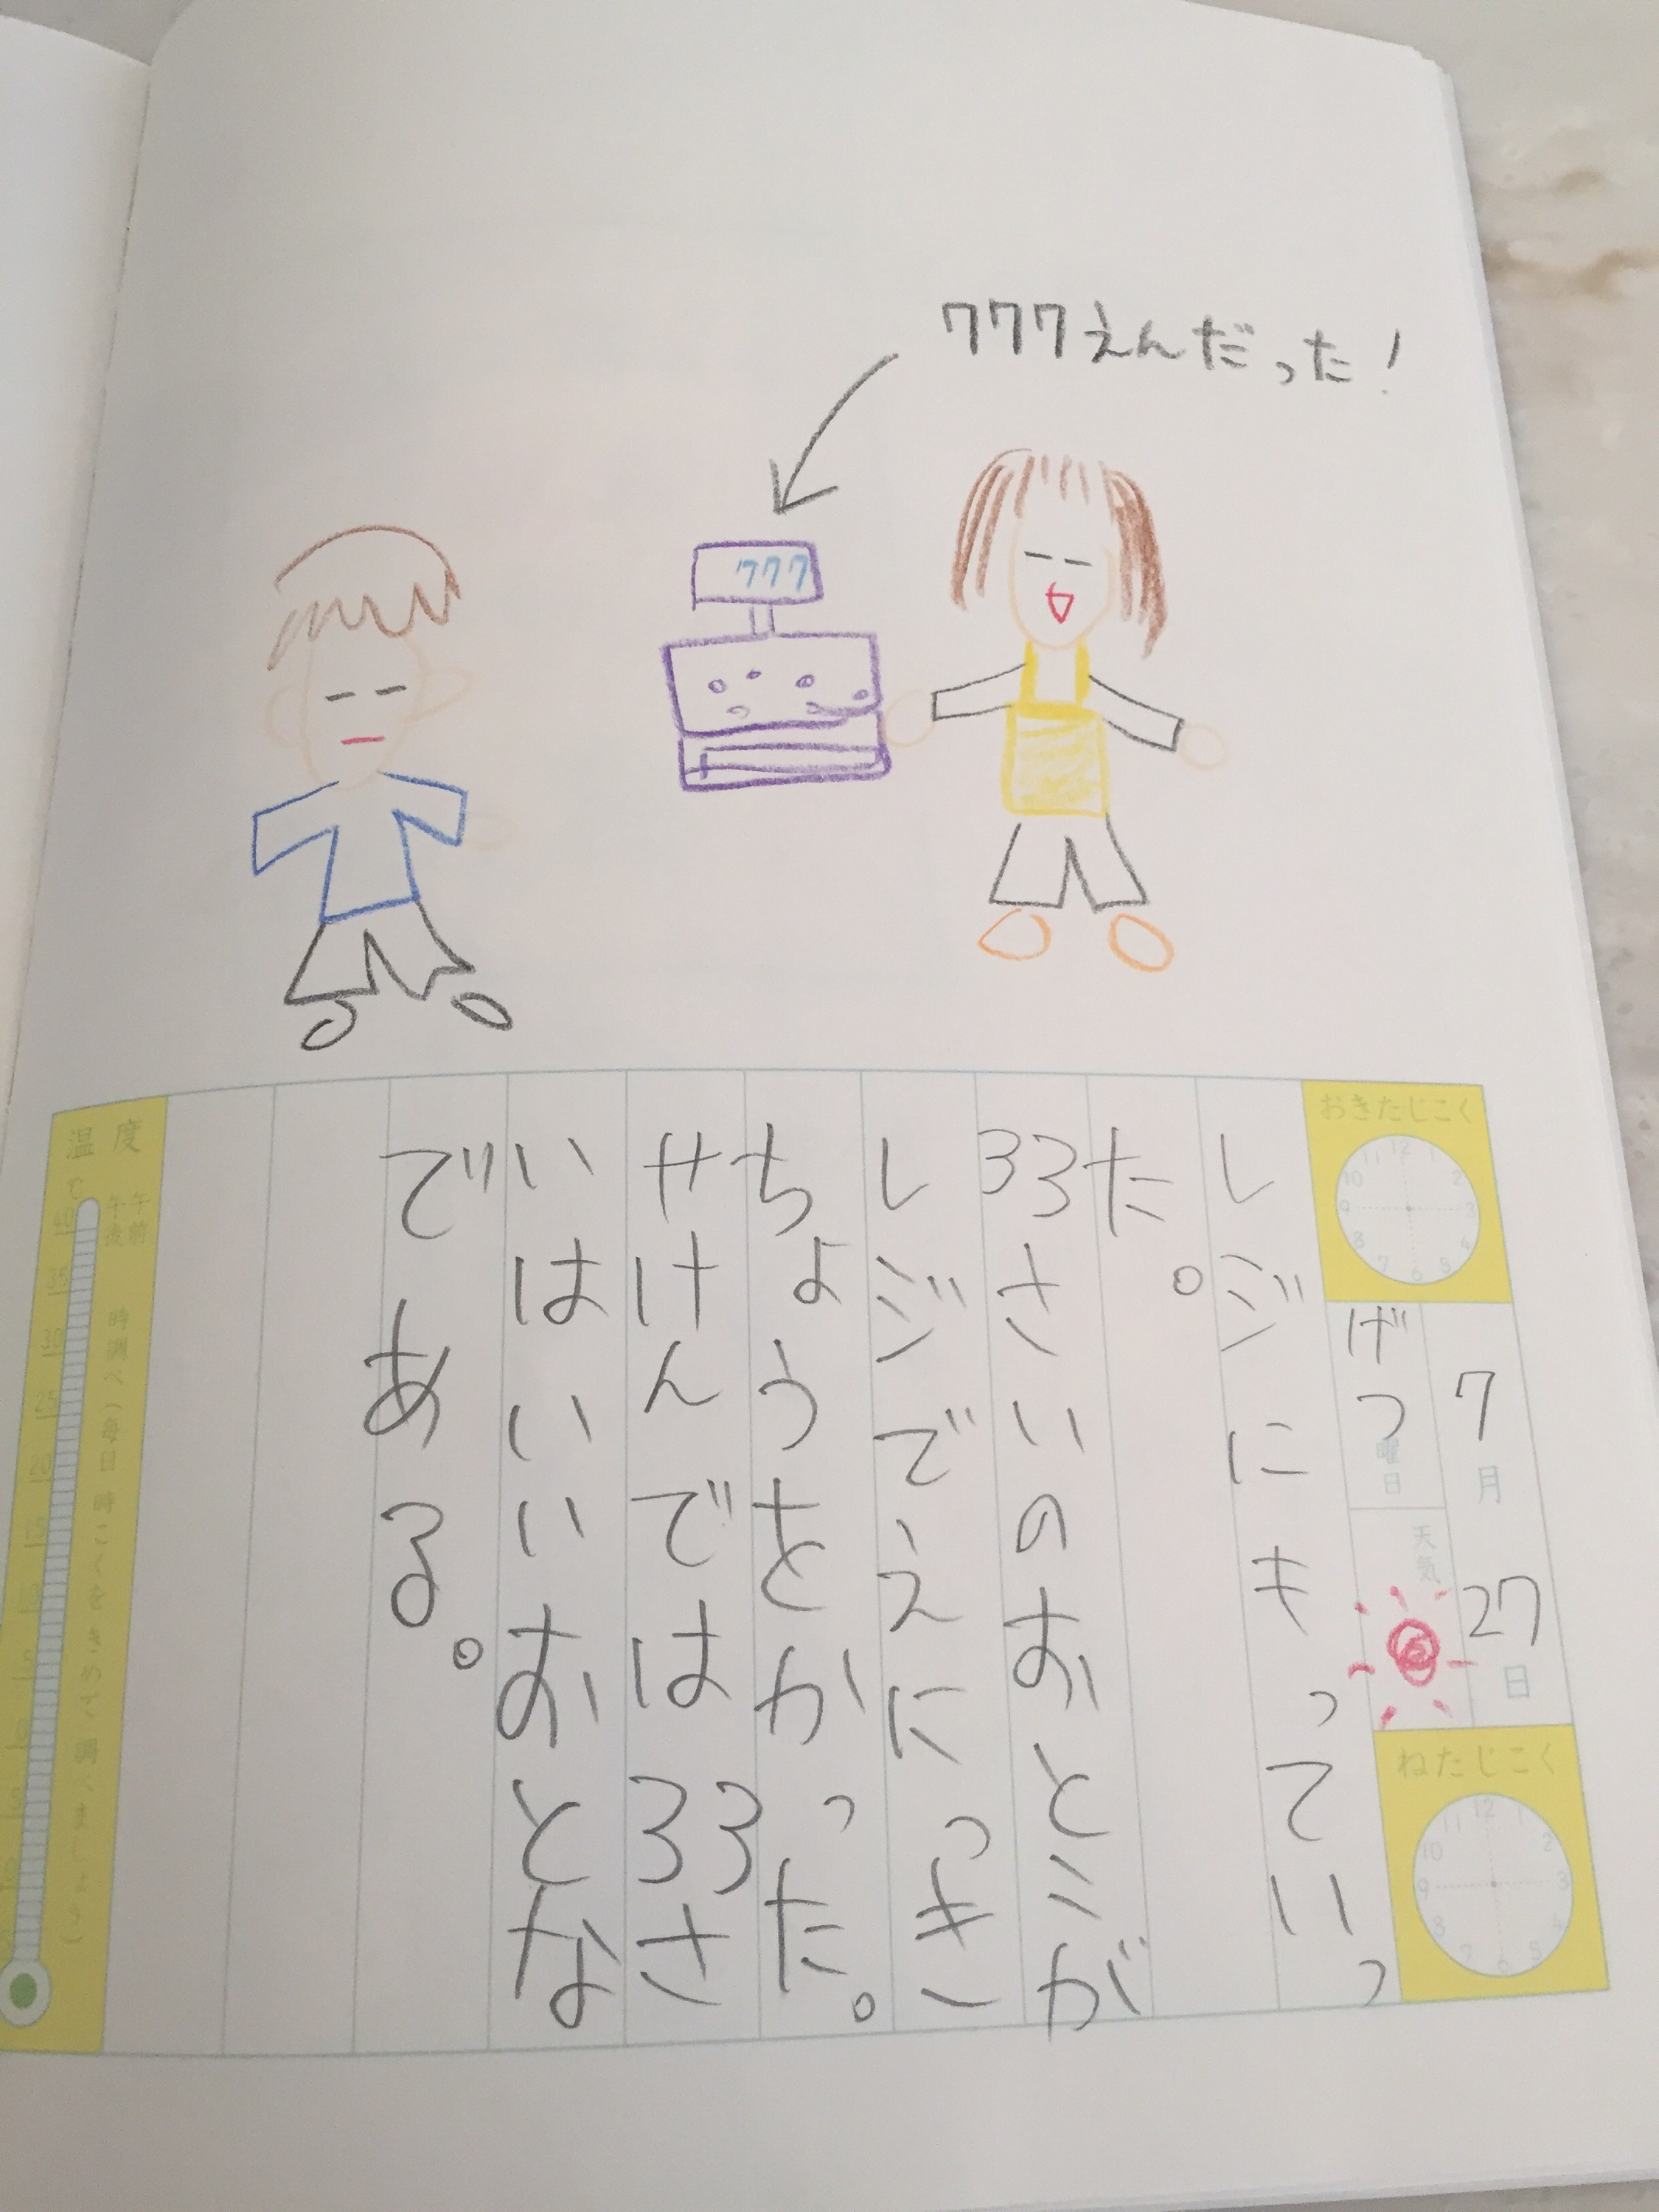 777えんだった!
777
おきたじこく
12 1 2 3 4 5 6 7 8 9 10 11
7月27日
げつ曜日
天気
ねたじこく
12 1 2 3 4 5 6 7 8 9 10 11
レジにもっていっ
た。
33さいのおとこが
レジでえにっき
ちょうをかった。
せけんでは33さ
いはいいおとな
である。
温度
午前
午後
時調べ(毎日 時こくをきめて調べましょう)
℃
40
35
30
25
20
15
10
5
0
5
10